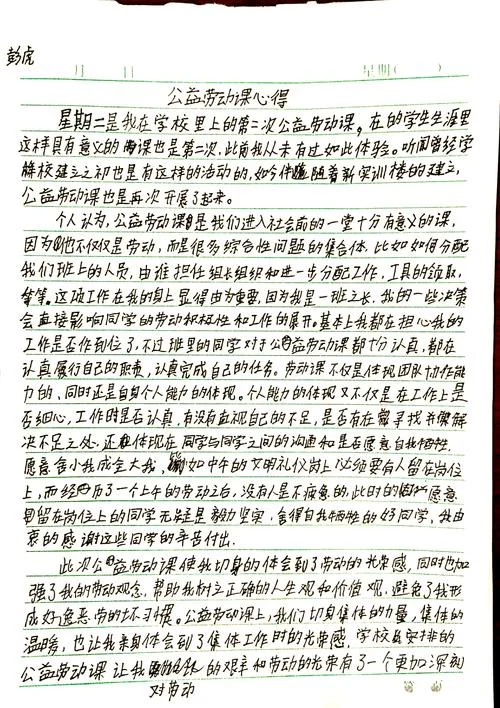 彭虎
月 日 星期( )
公益劳动课心得
星期二是我在学校里上的第二次公益劳动课，在的学生生涯里
这样具有意义的课也是第二次，此前我从未有过如此体验。听闻曾经学
院校建立之初也是有这样的活动的，如今伴随着新实训楼的建立，
公益劳动课也是再次开展了起来。
个人认为，公益劳动课是我们进入社会前的一堂十分有意义的课，
因为他不仅仅是劳动，而是很多综合性问题的集合体，比如如何分配
我们班上的人员，由谁担任组长组织和进一步分配工作，工具的领取，
等等。这项工作在我的身上显得由为重要，因为我是一班之长，我的一些决策
会直接影响同学的劳动积极性和工作的展开。基本上我都在担心我的
工作是否作到位了，不过班里的同学对于公益劳动课都十分认真，都在
认真履行自己的职责，认真完成自己的任务。劳动课不仅是体现团队协作能
力的，同时还是自身个人能力的体现。个人能力的体现又不仅是在工作上是
否细心，工作时是否认真，有没有正视自己的不足，是否有在寻找并解
决不足之处，还在体现在同学与同学之间的沟通和是否愿意自我牺牲，
愿意舍小我成全大我，如中午的文明礼仪岗上必须要有人留在岗位
上，而经历了一个上午的劳动之后，没有人是不疲惫的，此时的愿意
留在岗位上的同学无疑是毅力坚实，舍得自我牺牲的好同学，我由
衷的感谢这些同学的辛苦付出。
此次公益劳动课使我切身的体会到了劳动的光荣感，同时也加
强了我的劳动观念，帮助我树立正确的人生观和价值观，避免了我形
成好逸恶劳的坏习惯。公益劳动课上，我们切身集体的力量，集体的
温暖，也让我亲身体会到了集体工作时的光荣感，学校安排的
公益劳动课让我的艰辛和劳动的光荣有了一个更加深刻
对劳动